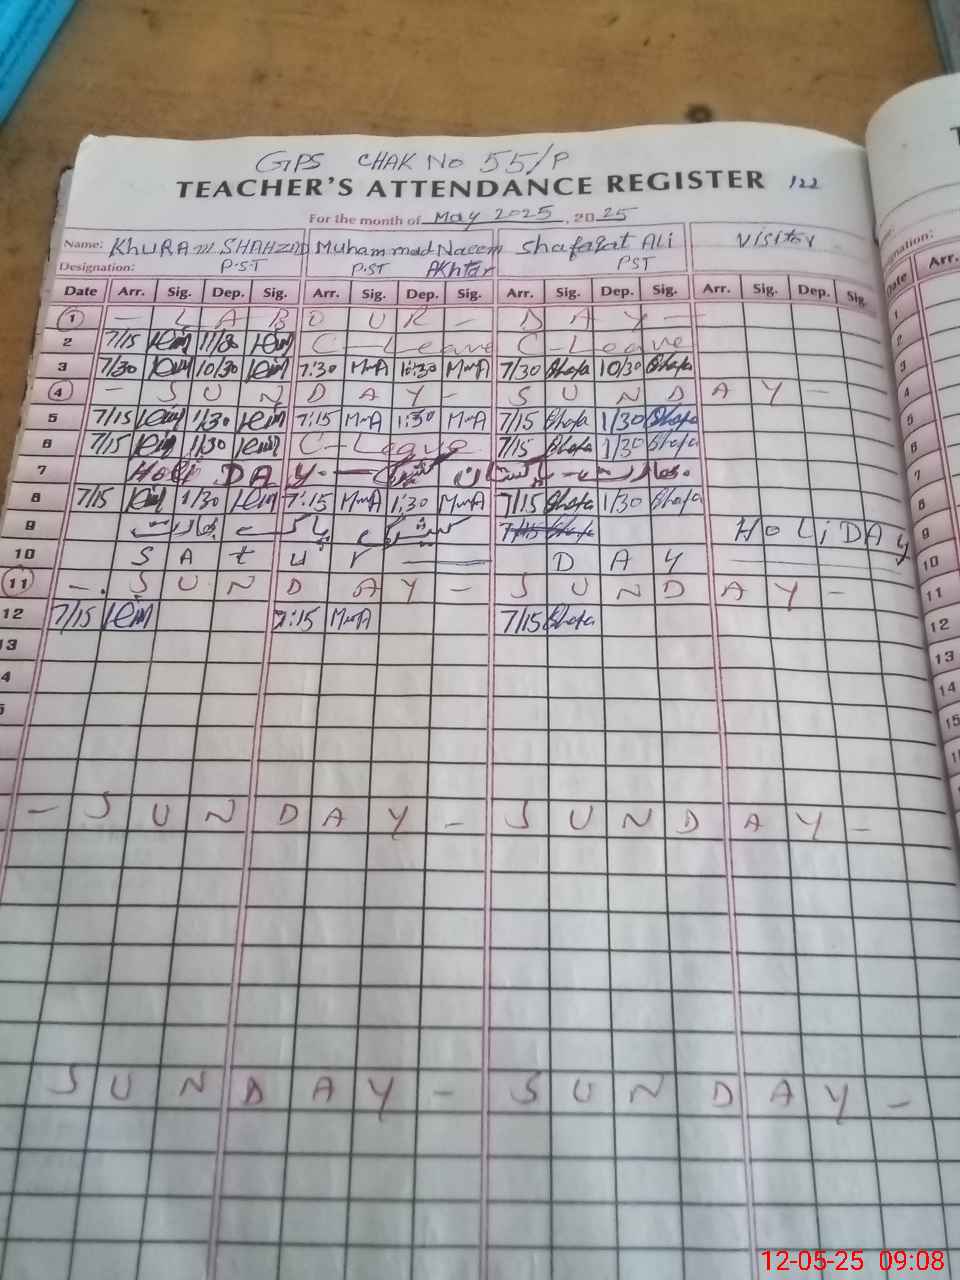 GPS CHAK No 55/P
TEACHER'S ATTENDANCE REGISTER 122
For the month of May 2025, 2025
Name: KHURAM SHAHZAD Muhammad Naeem Shafaqat Ali Visitor
Designation: P.S.T P.ST Akhtar PST
Date Arr. Sig. Dep. Sig. Arr. Sig. Dep. Sig. Arr. Sig. Dep. Sig. Arr. Sig. Dep. Sig.
1 — L A B O U R — D A Y —
2 7/15 11/30 C-Leave C-Leave
3 7/30 10/30 7:30 MnA 10:30 MnA 7/30 Shafa 10/30 Shafa
4 — S U N D A Y — S U N D A Y —
5 7/15 1/30 7:15 MnA 1:30 MnA 7/15 Shafa 1/30 Shafa
6 7/15 1/30 C-Leave 7/15 Shafa 1/30 Shafa
7 Holi DAY — پاکستان بھارت
8 7/15 1/30 7:15 MnA 1:30 MnA 7/15 Shafa 1/30 Shafa
9 بھارت پاک کشیدگی 7/15 Shafa HOLiDAY
10 S A t u r — D A Y
11 — S U N D A Y — S U N D A Y —
12 7/15 7:15 MnA 7/15 Shafa
13
4
5
— S U N D A Y — S U N D A Y —
S U N D A Y — S U N D A Y —
Designation:
Date Arr.
1
2
3
4
5
6
7
8
9
10
11
12
13
14
15
12-05-25 09:08